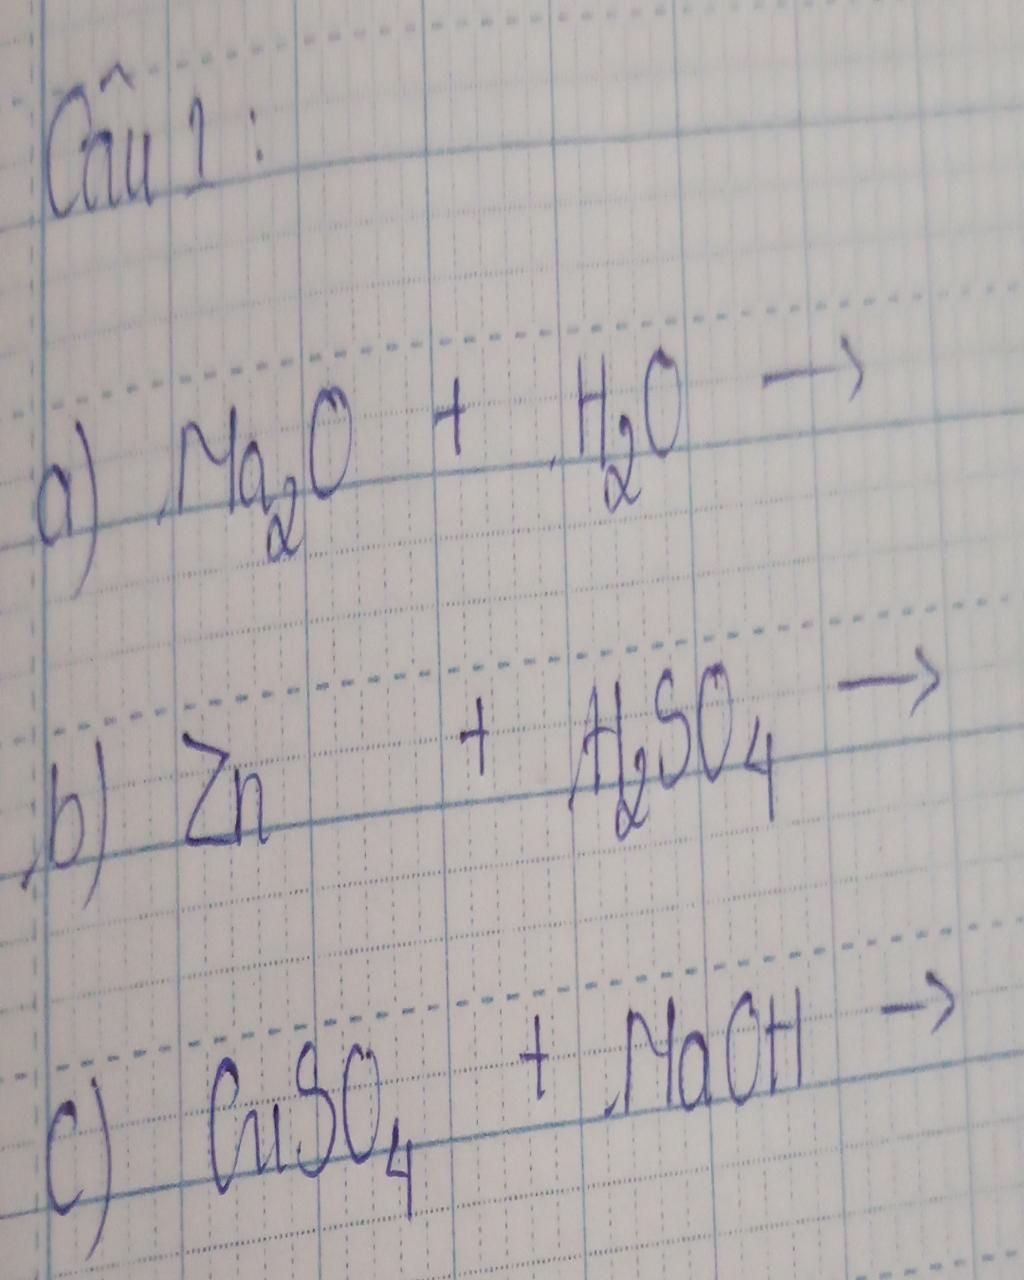 Câu 1:
a) Na₂O + H₂O →
b) Zn + H₂SO₄ →
c) CuSO₄ + NaOH →